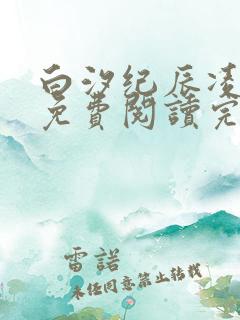 白汐紀辰凌
免費閱讀完
雷諾
未经同意禁止转载